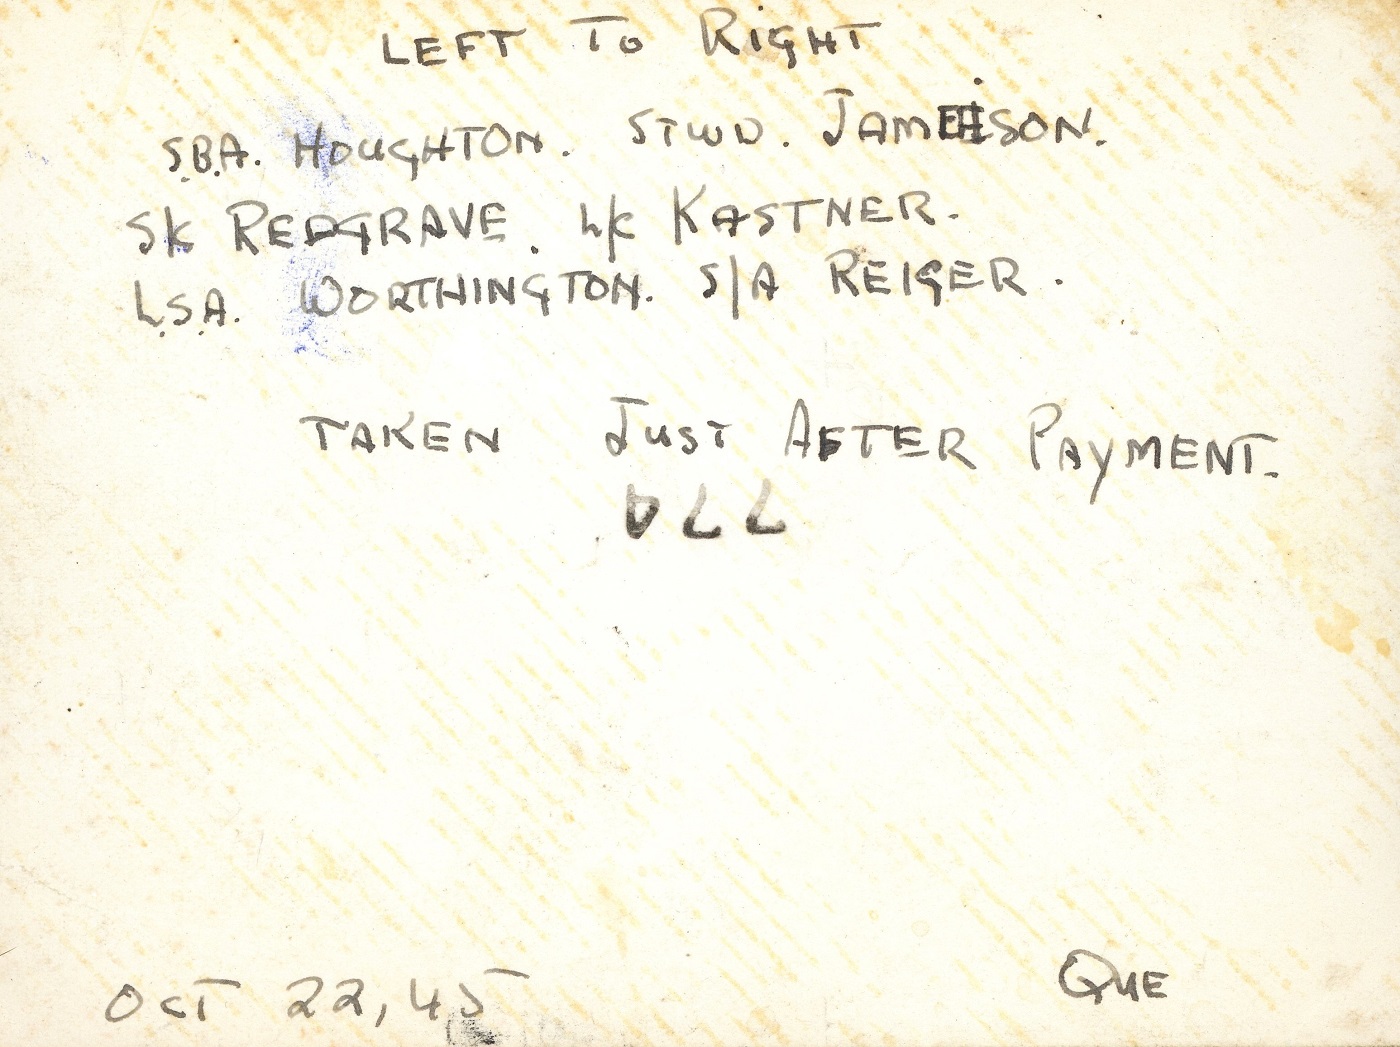 LEFT TO RIGHT
S.B.A. HOUGHTON. STWD. JAMEISON.
SK REDGRAVE. L/C KASTNER.
L.S.A. WORTHINGTON. S/A REIGER.
TAKEN JUST AFTER PAYMENT.
OCT 22, 45
QUE